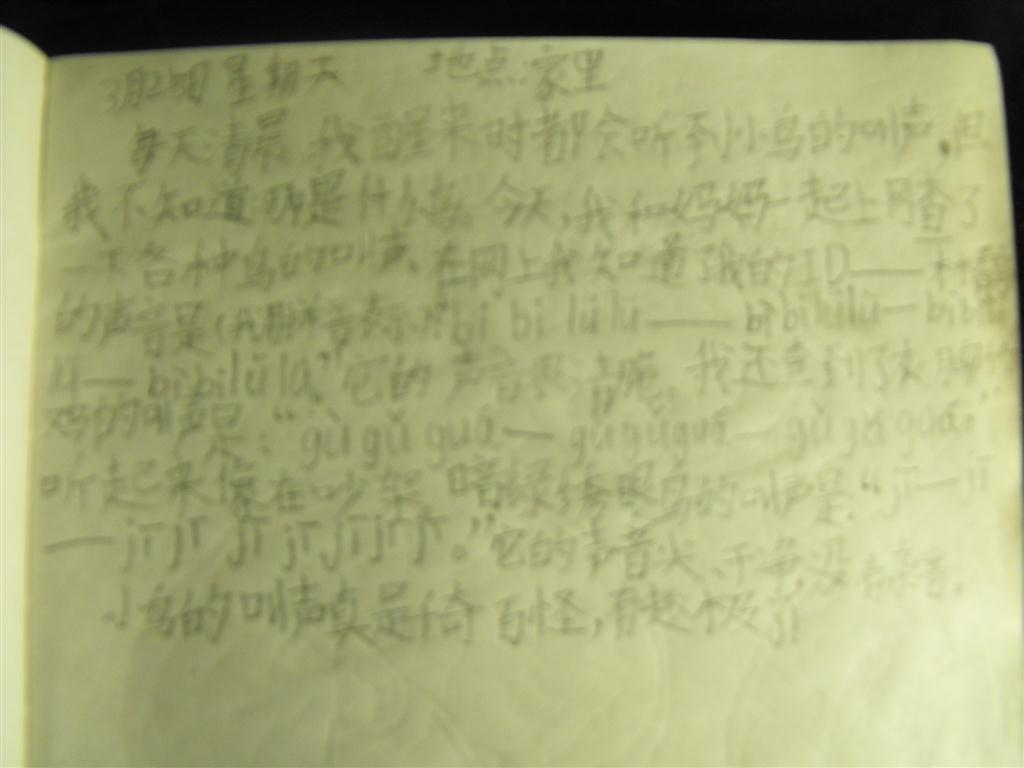 3月25日 星期天 地点:家里
每天清晨,我醒来时都会听到小鸟的叫声,但
我不知道那是什么鸟。今天,我和妈妈一起上网查了
一下各种鸟的叫声。在网上我知道了我的ID——
的声音是(我用拼音表示):“bi bi lü lü —— bi bi lü lü — bi bi lü
lü — bi bi lü lü”,它的声音很 我还查到了
鸡的叫声是:“gù gǔ guā — gù gǔ guā — gù gǔ guā”
听起来像在吵架。暗绿绣眼鸟的叫声是:“jī—jī
—jī jī jī jī jī jī jī。”它的声音尖、干净,没有杂音。
小鸟的叫声真是千奇百怪,有趣极了!